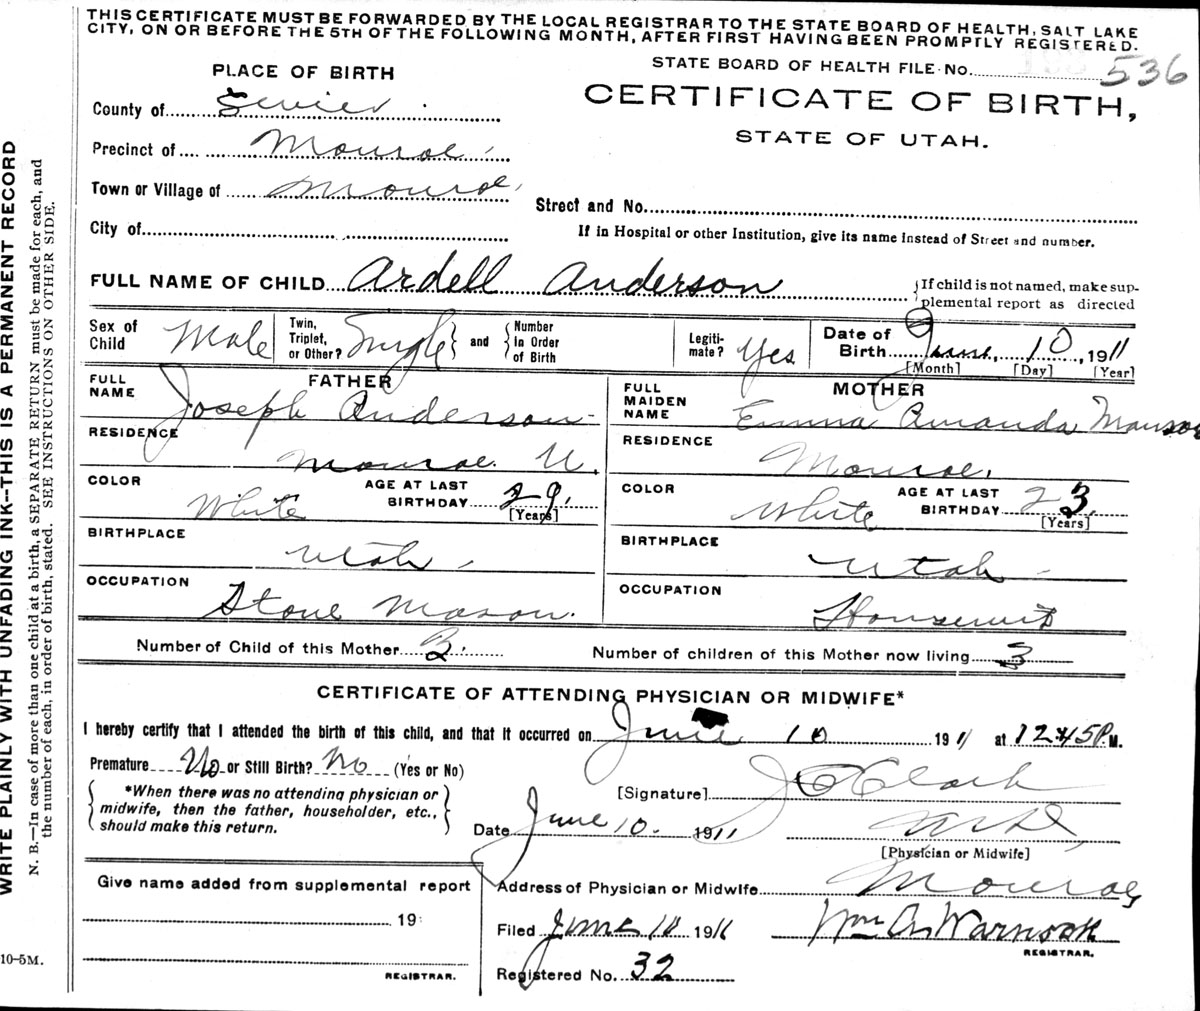 THIS CERTIFICATE MUST BE FORWARDED BY THE LOCAL REGISTRAR TO THE STATE BOARD OF HEALTH, SALT LAKE
CITY, ON OR BEFORE THE 5TH OF THE FOLLOWING MONTH, AFTER FIRST HAVING BEEN PROMPTLY REGISTERED.
PLACE OF BIRTH
STATE BOARD OF HEALTH FILE No. 536
CERTIFICATE OF BIRTH,
STATE OF UTAH.
County of Sevier
Precinct of Monroe
Town or Village of Monroe
Street and No.
City of
If in Hospital or other Institution, give its name instead of Street and number.
FULL NAME OF CHILD Ardell Anderson
If child is not named, make sup-
plemental report as directed
Sex of Child Male
Twin, Triplet, or Other? Single and Number In Order of Birth
Legiti-mate? Yes
Date of Birth June 10, 1911
[Month] [Day] [Year]
FATHER
FULL NAME Joseph Anderson
RESIDENCE Monroe. U.
COLOR White AGE AT LAST BIRTHDAY 29.
[Years]
BIRTHPLACE Utah
OCCUPATION Stone Mason.
MOTHER
FULL MAIDEN NAME Emma Amanda
RESIDENCE Monroe.
COLOR White AGE AT LAST BIRTHDAY 23
[Years]
BIRTHPLACE Utah
OCCUPATION Housewife
Number of Child of this Mother 3. Number of children of this Mother now living 3
CERTIFICATE OF ATTENDING PHYSICIAN OR MIDWIFE*
I hereby certify that I attended the birth of this child, and that it occurred on June 10 1911 at 12 45 P. M.
Premature No or Still Birth? No (Yes or No)
*When there was no attending physician or
midwife, then the father, householder, etc.,
should make this return.
[Signature] Clark
Date June 10. 1911 M D
[Physician or Midwife]
Give name added from supplemental report
19
REGISTRAR.
Address of Physician or Midwife Monroe
Filed June 10 1911 Wm A. Warnock
REGISTRAR.
Registered No. 32
WRITE PLAINLY WITH UNFADING INK--THIS IS A PERMANENT RECORD
N. B.—In case of more than one child at a birth, a SEPARATE RETURN must be made for each, and
the number of each, in order of birth, stated. SEE INSTRUCTIONS ON OTHER SIDE.
10-5M.